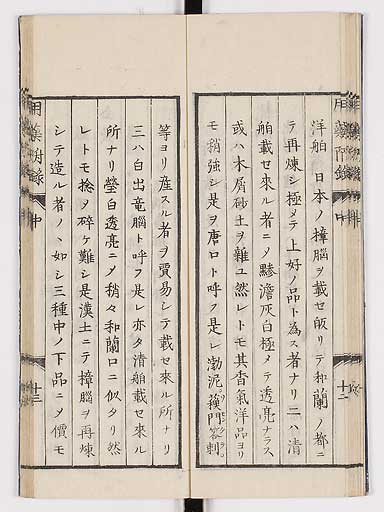 洋舶日本ノ樟腦ヲ載セ皈リテ和蘭ノ都ニ
テ再煉シ極メテ上好ノ品ト為ス者ナリ二ハ清
舶載セ來ル者ニノ黲澹灰白極メテ透亮ナラス
或ハ木屑砂土ヲ雜ユ然レトモ其香氣洋品ヨリ
モ稍強シ是ヲ唐ロト呼フ是レ渤泥
等ヨリ産スル者ヲ賈易シテ載セ來ル所ナリ
三ハ白出竜腦ト呼フ是レ亦タ清舶載セ來ル
所ナリ瑩白透亮ニノ稍々和蘭ロニ似タリ然
レトモ捻タ碎ケ難シ是漢土ニテ樟腦ヲ再煉
シテ造ル者ノヽ如シ三種中ノ下品ニノ價モ
中
十三
十二